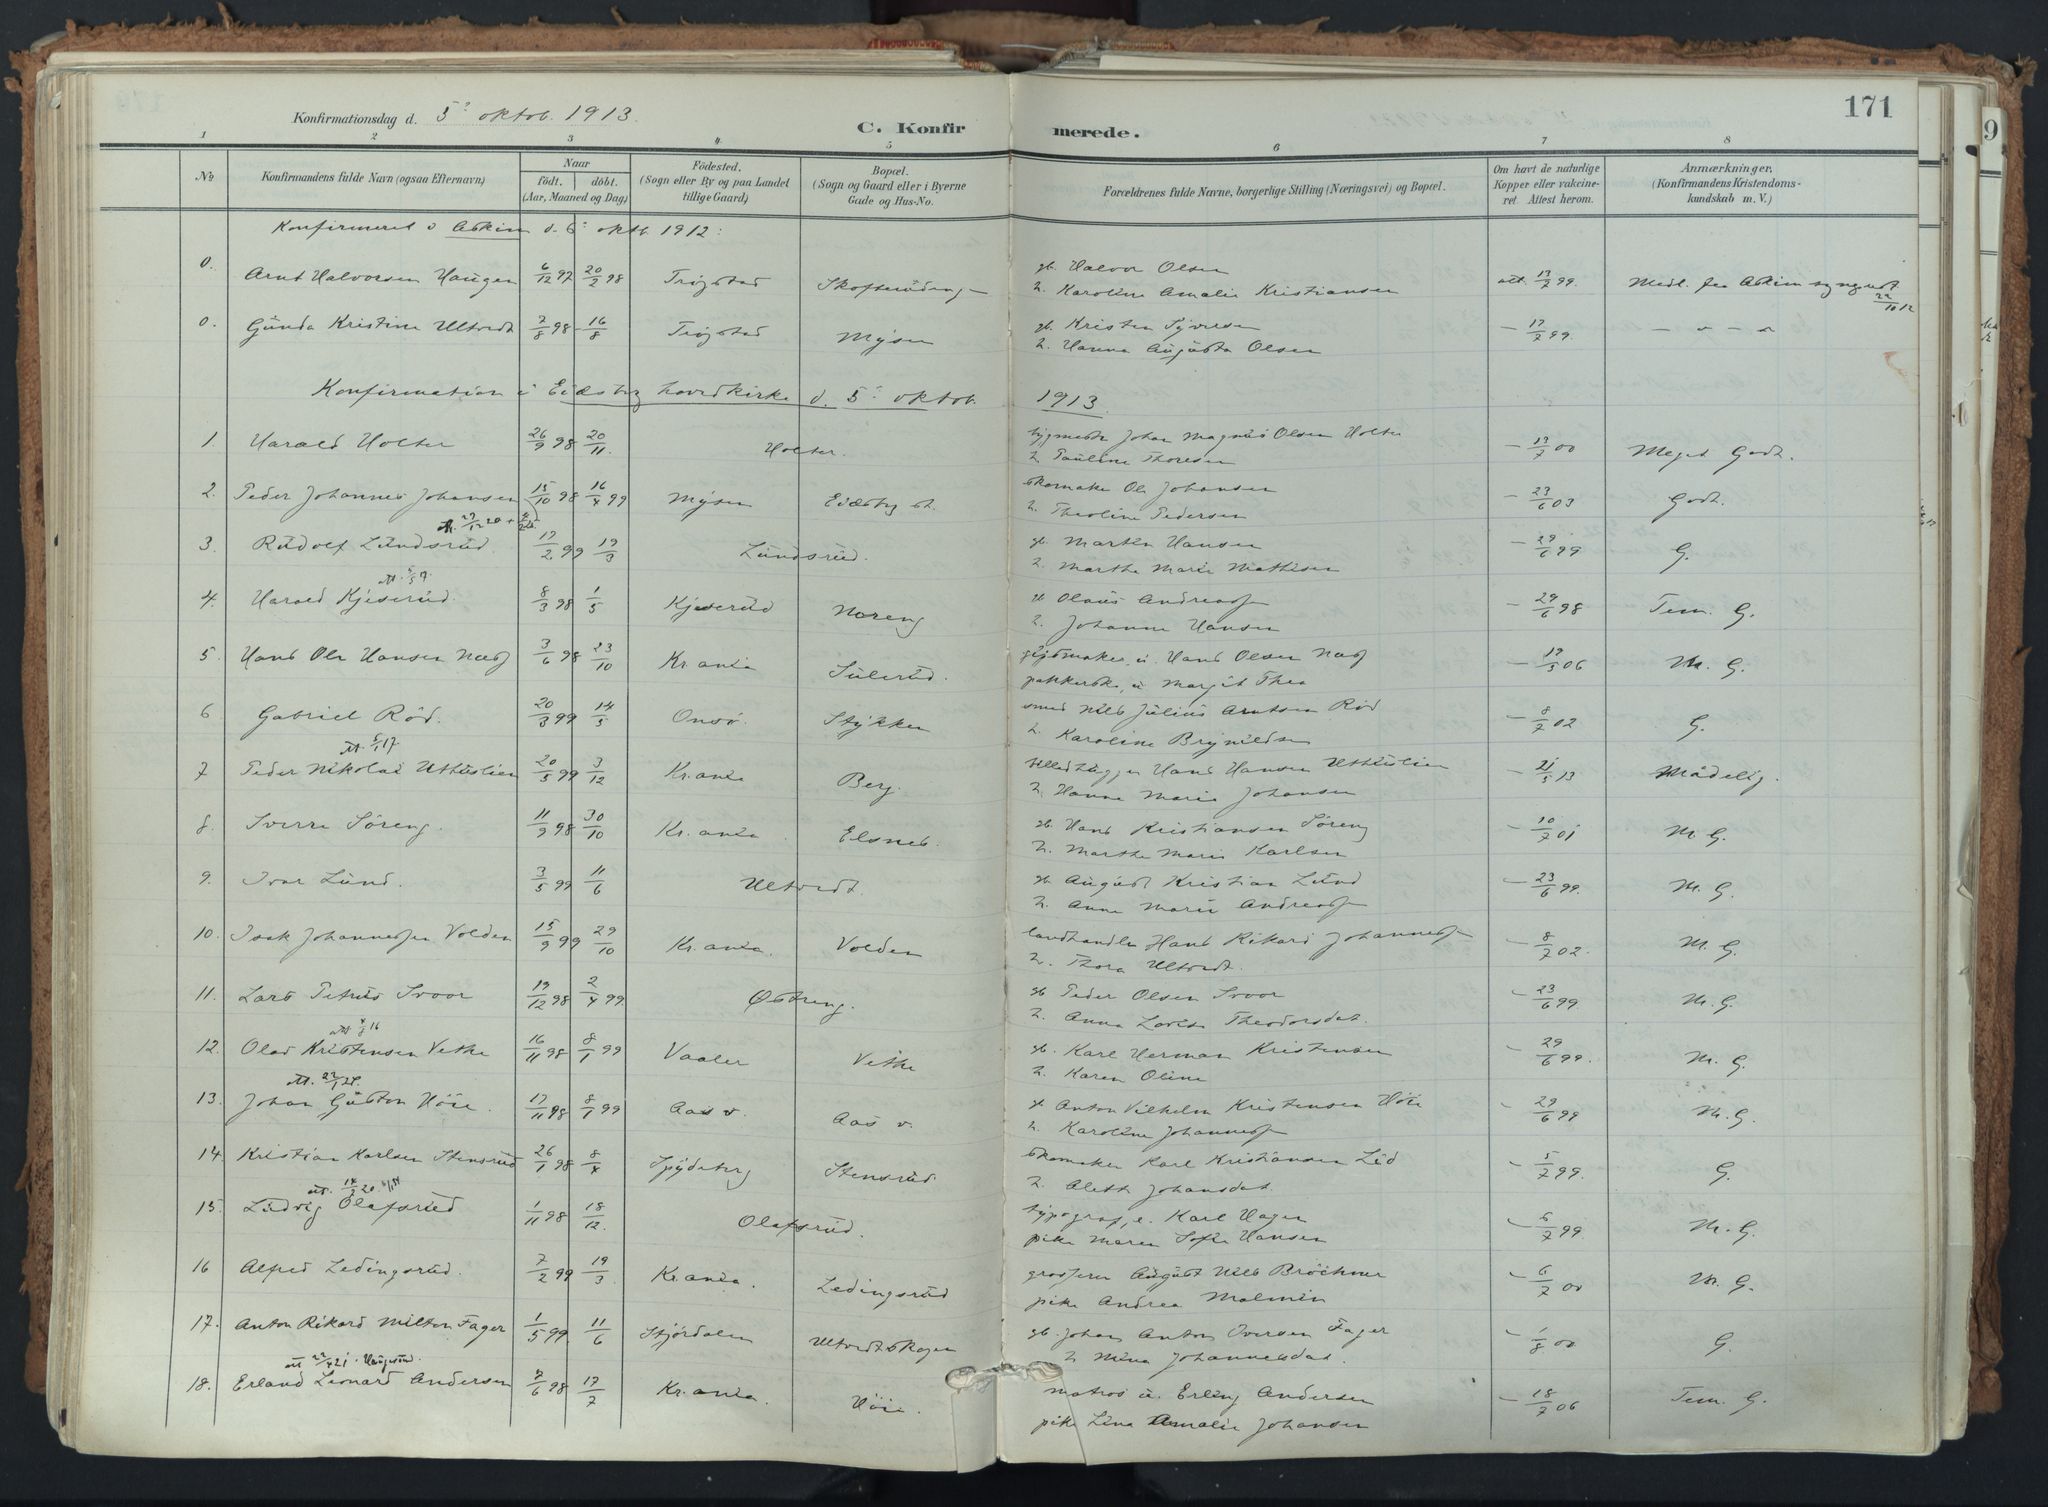 171
Konfirmationsdag d. 5' oktob. 1913.
C. Konfirmerede.
1 2 3 4 5 6 7 8
No
Konfirmandens fulde Navn (ogsaa Efternavn)
Naar
födt. döbt.
(Aar, Maaned og Dag)
Födested.
(Sogn eller By og paa Landet
tillige Gaard)
Bopæl.
(Sogn og Gaard eller i Byerne
Gade og Hus-No.
Forældrenes fulde Navne, borgerlige Stilling (Næringsvei) og Bopæl.
Om havt de naturlige
Kopper eller vakcine-
ret Attest herom.
Anmærkninger.
(Konfirmandens Kristendoms-
kundskab m. V.)
Konfirmeret i Askim d. 6' oktb. 1912:
0. Arnt Halvorsen Haugen 6/12 97 20/2 98 Trøgstad gb. Halvor Olsen
2. Karoline Amalie Kristiansen att. 13/7 99. Medl. fra Askim sogneprt 22/10 12
0. Gunda Kristine Ultvedt 7/8 98 - 16/8 Trøgstad Mysen gb. Kristen Syversen - 17/7 99. - " - "
2. Hanna Augusta Olsen
Konfirmation i Eidsberg hovedkirke d. 5' oktob. 1913.
1. Harald Holter 26/9 98 20/11 Holter. Johan Magnus Olsen Holter
2. Pauline Thoresen - 17/7 00 Meget Godt.
2. Peder Johannes Johansen 15/10 98 16/4 99 Mysen Eidsberg st. skomaker Ole Johansen
2. Theoline Pedersen - 23/6 03 Godt.
3. Rudolf Lundsrud. 17/2 99 19/3 Lundsrud. gb. Martin Hansen
2. Marthe Marie Mathisen - 29/6 99 G.
4. Harald Kjeserud. 8/3 98 1/5 Kjeserud Noreng Olaus Andreassen
2. Johanne Hansen - 29/6 98 Tem. G.
5. Hans Ole Hansen Næs 3/6 98 23/10 Kr.ania Sulerud. Hans Olsen Næs
Margit Thea - 19/5 06 M. G.
6 Gabriel Rød. 20/3 99 14/5 Onsø. Stykken smed Nils Julius Arntsen Rød
2. Karoline Brynildsen - 8/7 02 G.
7 Peder Nikolai Uthuslien 20/5 99 3/12 Kr.ania Berg. Hans Hansen Uthuslien
2. Hanna Marie Johansen - 21/5 13 Mådelig.
8. Sverre Søreng. 11/9 98 30/10 Kr.ania. Elsnes. gb. Hans Kristiansen Søreng
2. Marthe Marie Karlsen - 10/7 01 M. G.
9. Ivar Lund. 3/5 99 11/6 Ultvedt. gb. August Kristian Lund
2. Anne Marie Andreassen - 23/6 99. M. G.
10. Isak Johannessen Volden 15/9 99 29/10 Kr.ania. Volden landhandler Hans Rikard Johannessen
2. Thora Ultvedt. - 8/7 02. M. G.
11. Lars Petrus Svoor 19/12 98 2/4 99. Østreng. gb Peder Olsen Svoor
2. Anna Theodorsdat. - 23/6 99. M. G.
12. Olaf Kristensen Vethe 16/11 98 8/1 99 Vaaler Vethe gb. Karl Herman Kristensen
2. Karen Oline - 29/6 99. M. G.
13. Johan Gustav Høie. 17/11 98 8/1 99 Aas v. Aas v. Anton Vilhelm Kristensen Høie
2. Karoline Johannessen - 29/6 99 M. G.
14. Kristian Karlsen Stensrud 26/1 98 8/4 Spydeberg Stensrud skomaker Karl Kristiansen Lid
2. Aleth Johansdat. - 5/7 99. G.
15. Ludvig Olafsrud 1/11 98 18/12. Olafsrud. typograf, e. Karl Hagen
pike Maren Sofie Hansen - 6/7 99. M. G.
16 Alfred Ledingsrud. 7/2 99 19/3 Kr.ania. Ledingsrud grosserer August Nils Bröchner
pike Andrea Malmin - 6/7 00 M. G.
17. Anton Rikard Milton Fager 1/5 99 11/6 Stjördalen Ultvedtskogen gb. Johan Anton Iversen Fager
2 Nina Johannesdat. - 1/8 00 G.
18. Erland Leonard Andersen 7/6 98 17/7 Kr.ania. Høie. matros u. Erling Andersen
pike Lina Amalie Johansen - 18/7 06 Tem. G.